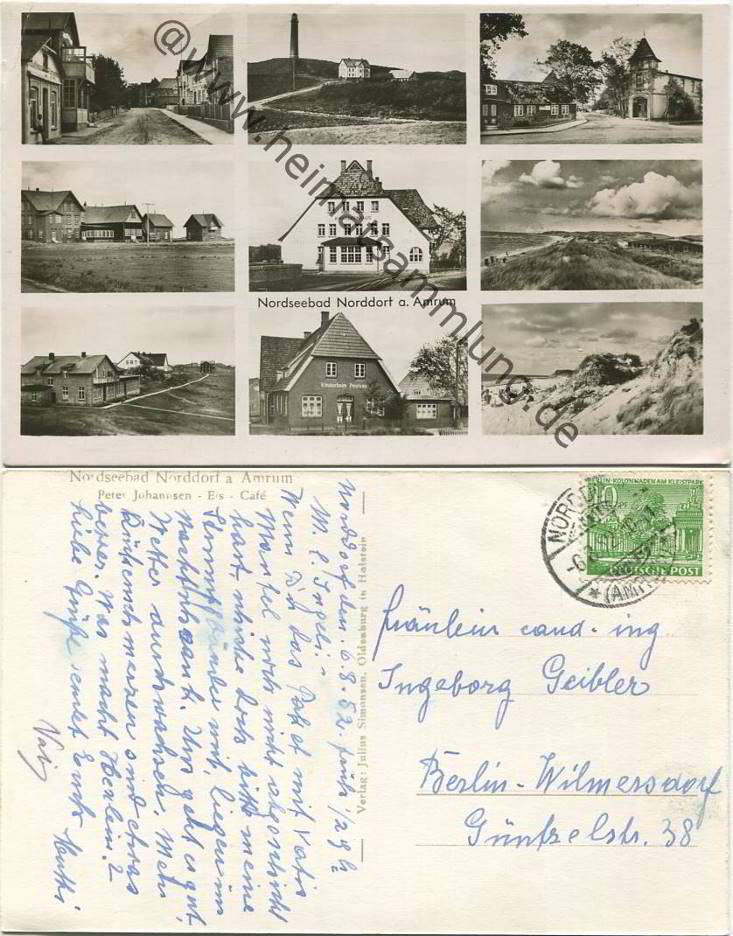 Nordseebad Norddorf a. Amrum
Kinderheim
@www.heimatsammlung.de
Nordseebad Norddorf a Amrum
Peter Johannsen - Eis - Café
BERLIN-KOLONNADEN AM KLEISTPARK
DEUTSCHE POST
Verlag: Julius Simonsen, Oldenburg in Holstein
Norddorf den 6.8.52. früh 1/2 9 h
M. l. Ingeli.
Wenn Du das Paket mit Vatis
Mantel noch nicht abgeschickt
hast, schicke doch bitte meine
mit, liegen im
Nachtschrank. Uns geht es gut,
Wetter auch
sind etwas
besser. Was macht Berlin?
Liebe Grüße sendet Eure Mutti
Fräulein cand. ing
Ingeborg Geibler
Berlin-Wilmersdorf
Güntzelstr. 38